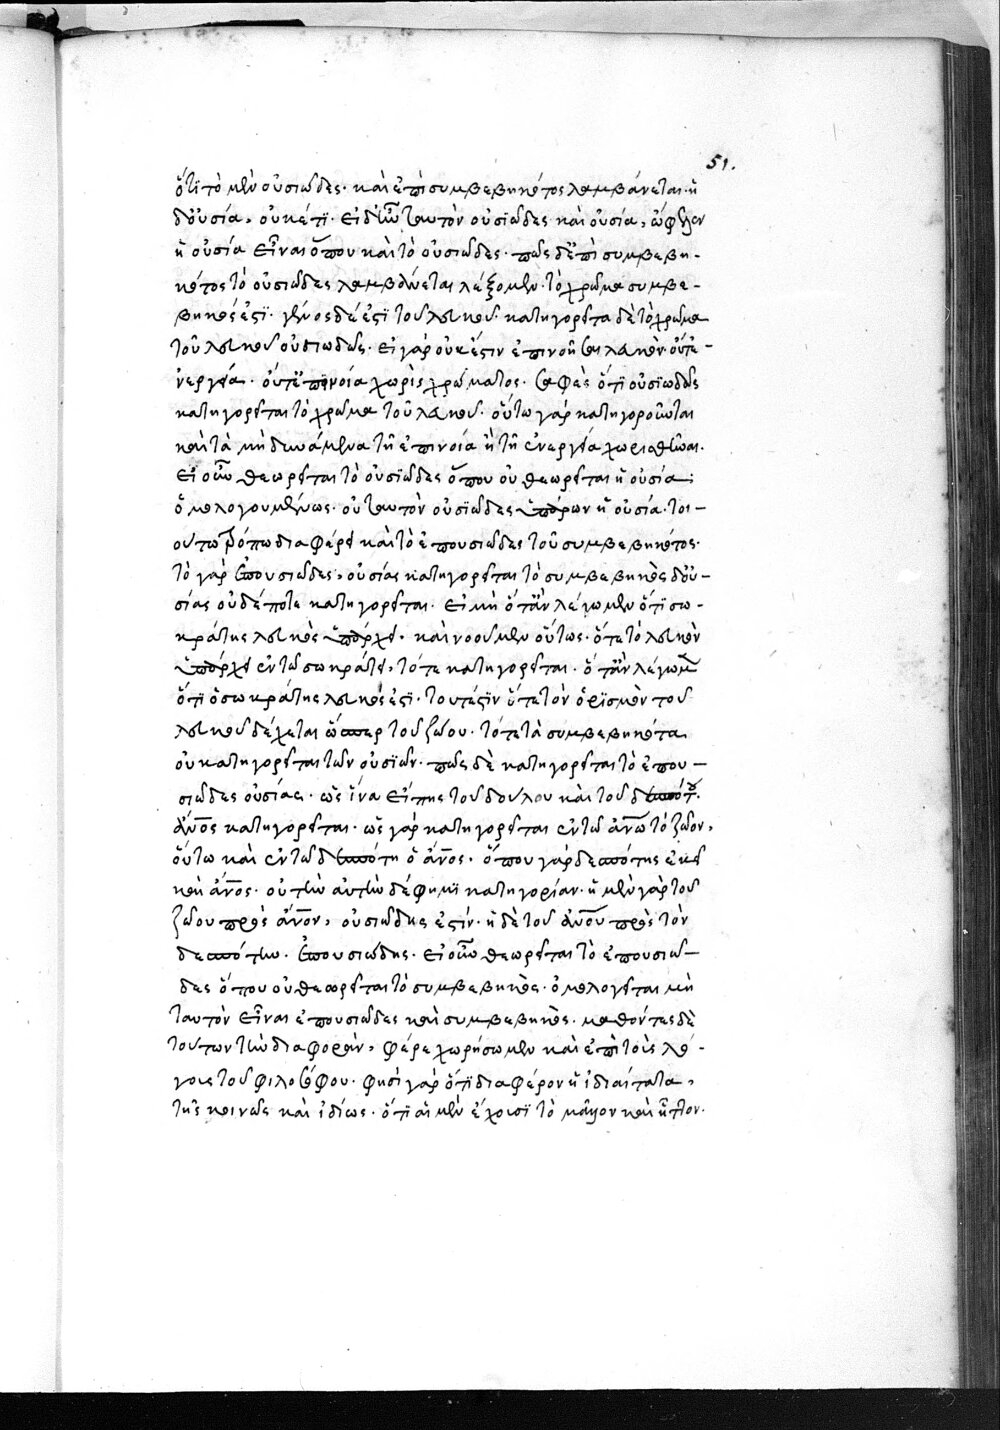 51.
ὅτι τὸ μὲν οὐσιῶδες· καὶ ἐπὶ συμβεβηκότος λαμβάνεται· ἡ
δ' οὐσία, οὐκέτι· εἰ δ' ἦν ταυτὸν οὐσιῶδες καὶ οὐσία, ὤφειλεν
ἡ οὐσία εἶναι ὅπου καὶ τὸ οὐσιῶδες· πῶς δ' ἐπὶ συμβεβη-
κότος τὸ οὐσιῶδες λαμβάνεται λέξομεν· τὸ χρῶμα συμβε-
βηκός ἐστι· γένος δέ ἐστι τοῦ λευκοῦ· κατηγορεῖται δὲ τὸ χρῶμα
τοῦ λευκοῦ οὐσιωδῶς· εἰ γὰρ οὐκ ἔστιν ἐπινοῆσαι λευκὸν· οὔτε
ἐνεργεία· οὔτ' ἐπινοία χωρὶς χρώματος· σαφὲς ὅτι οὐσιωδῶς
κατηγορεῖται τὸ χρῶμα τοῦ λευκοῦ· οὕτω γὰρ κατηγοροῦνται
καὶ τὰ μὴ δυνάμενα τῇ ἐπινοία ἢ τῇ ἐνεργεία χωρισθῆναι·
εἰ οὖν θεωρεῖται τὸ οὐσιῶδες ὅπου οὐ θεωρεῖται ἡ οὐσία·
ὁμολογουμένως· οὐ ταυτὸν οὐσιῶδες ὑπάρχον ἡ οὐσία· τοι-
ούτω τρόπω διαφέρει καὶ τὸ ἐπουσιῶδες τοῦ συμβεβηκότος·
τὸ γὰρ ἐπουσιῶδες, οὐσίας κατηγορεῖται τὸ συμβεβηκὸς δ' οὐ-
σίας οὐδέποτε κατηγορεῖται· εἰ μὴ ὅταν λέγωμεν ὅτι σω-
κράτης λευκὸς ὑπάρχει· καὶ νοοῦμεν οὕτως· ὅτε τὸ λευκὸν
ὑπάρχει ἐν τῶ σωκράτει, τότε κατηγορεῖται· ὅταν λέγωμεν
ὅτι ὁ σωκράτης λευκός ἐστι· τουτέστιν ὅτε τὸν ὁρισμὸν τοῦ
λευκοῦ δέχεται ὥσπερ τοῦ ζώου· τότε τὰ συμβεβηκότα
οὐ κατηγορεῖται τῶν οὐσιῶν· πῶς δὲ κατηγορεῖται τὸ ἐπου-
σιῶδες οὐσίας· ὡς ἵνα εἴπῃς τοῦ δούλου καὶ τοῦ δεσπότου·
ἄνος κατηγορεῖται· ὡς γὰρ κατηγορεῖται ἐν τῶ ἀνω τὸ ζῶον,
οὕτω καὶ ἐν τῶ δεσπότη ὁ ἄνος· ὅπου γὰρ δεσπότης ἐκεῖ
καὶ ἄνος· οὐ τὴν αὐτὴν δέ φημι κατηγορίαν· ἡ μὲν γὰρ τοῦ
ζώου πρὸς ἄνον, οὐσιώδης ἐστίν· ἡ δὲ τοῦ ἀνου πρὸς τὸν
δεσπότην· ἐπουσιώδης· εἰ οὖν θεωρεῖται τὸ ἐπουσιῶ-
δες ὅπου οὐ θεωρεῖται τὸ συμβεβηκὸς· ὁμολογεῖται μὴ
ταυτὸν εἶναι ἐπουσιῶδες καὶ συμβεβηκὸς· μαθόντες δὲ
τούτων τὴν διαφορὰν, φέρε χωρήσωμεν καὶ ἐπὶ τοὺς λό-
γους τοῦ φιλοσόφου· φησὶ γὰρ ὅτι διαφέρον ἢ ἰδιαίτατα,
τῆς κοινῶς καὶ ἰδίως· ὅτι αἱ μὲν ἔχουσι τὸ μᾶλλον καὶ ἧττον·